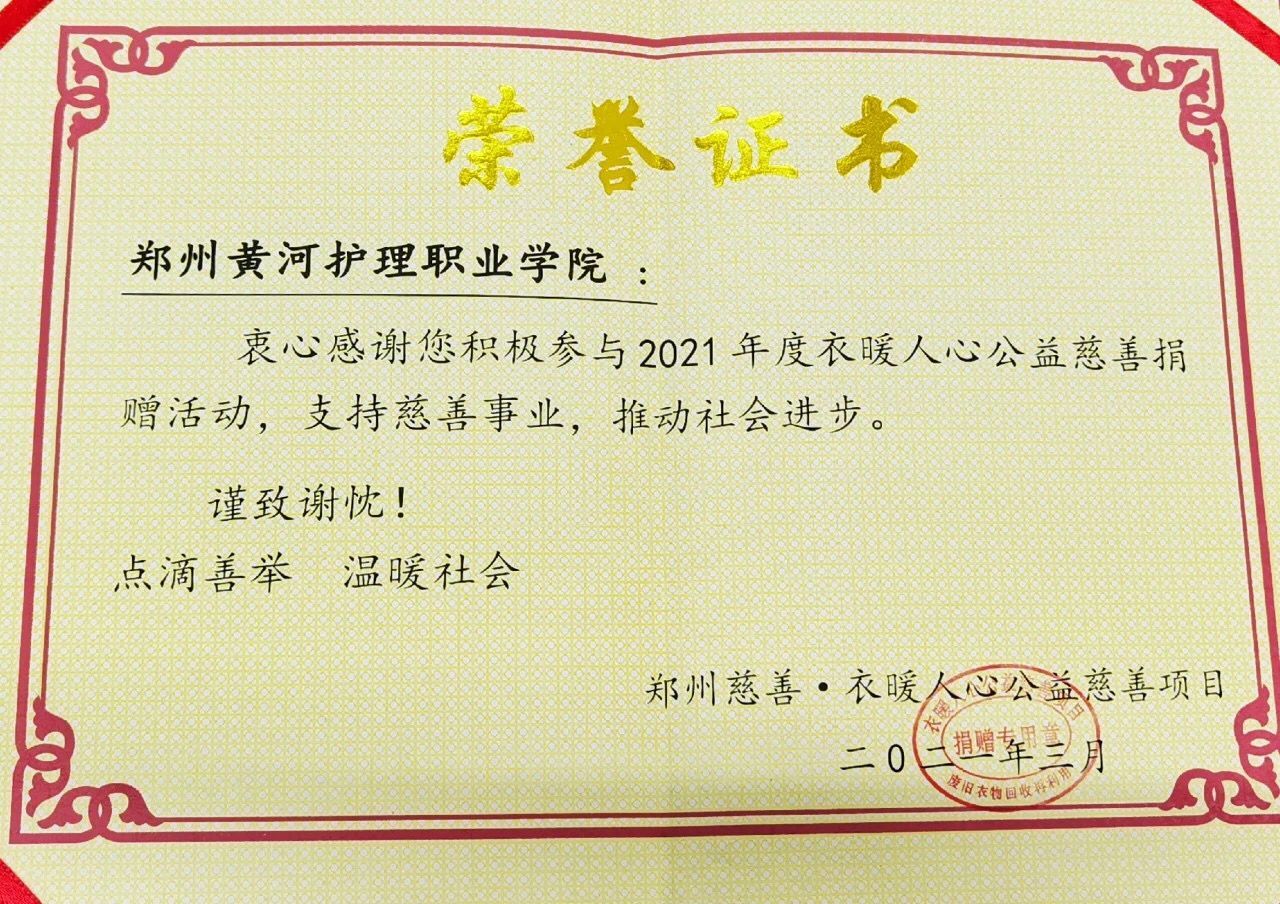 荣誉证书
郑州黄河护理职业学院：
衷心感谢您积极参与2021年度衣暖人心公益慈善捐
赠活动，支持慈善事业，推动社会进步。
谨致谢忱！
点滴善举 温暖社会
郑州慈善·衣暖人心公益慈善项目
二0二一年三月
衣暖人心公益慈善项目
捐赠专用章
废旧衣物回收再利用